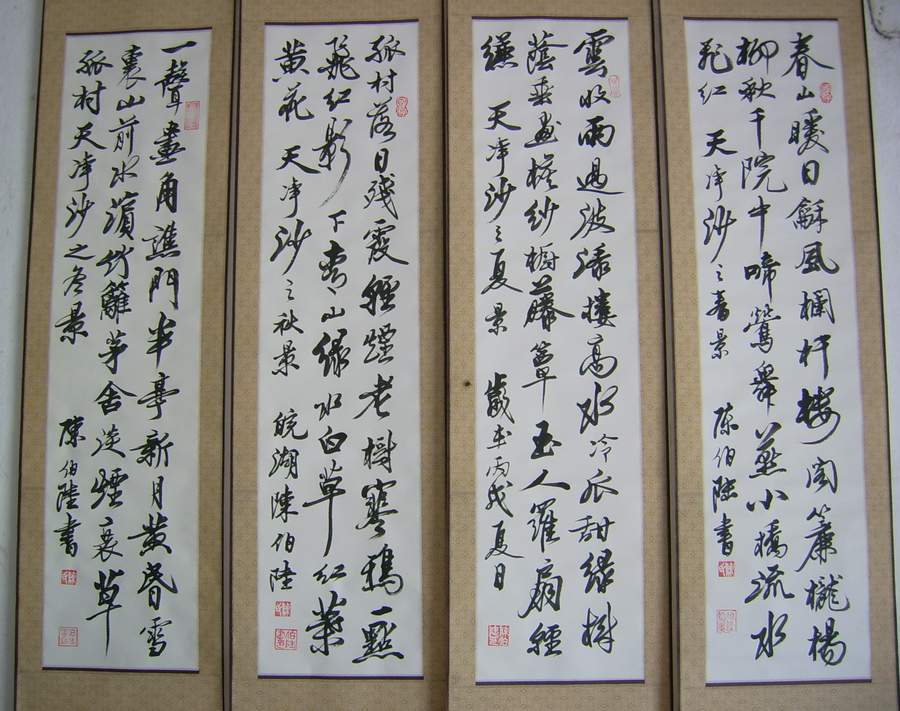 春山暖日龢風欄杆樓閣簾櫳楊
柳秋千院中啼鶯舞燕小橋流水
飛紅 天净沙之春景 陈伯陸書
雲收雨過波添樓高水冷瓜甜緑樹
蔭垂畫檐紗橱藤簟玉人羅扇輕
縑 天净沙之夏景 歲在丙戌夏日
孤村落日殘霞輕煙老樹寒鴉一點
飛紅影下青山緑水白草紅葉
黄花 天净沙之秋景 皖湖陳伯陸
一聲畫角譙門半亭新月黄昏雪
裏山前水濱竹籬茅舍淡煙衰草
孤村天净沙之冬景 陳伯陸書